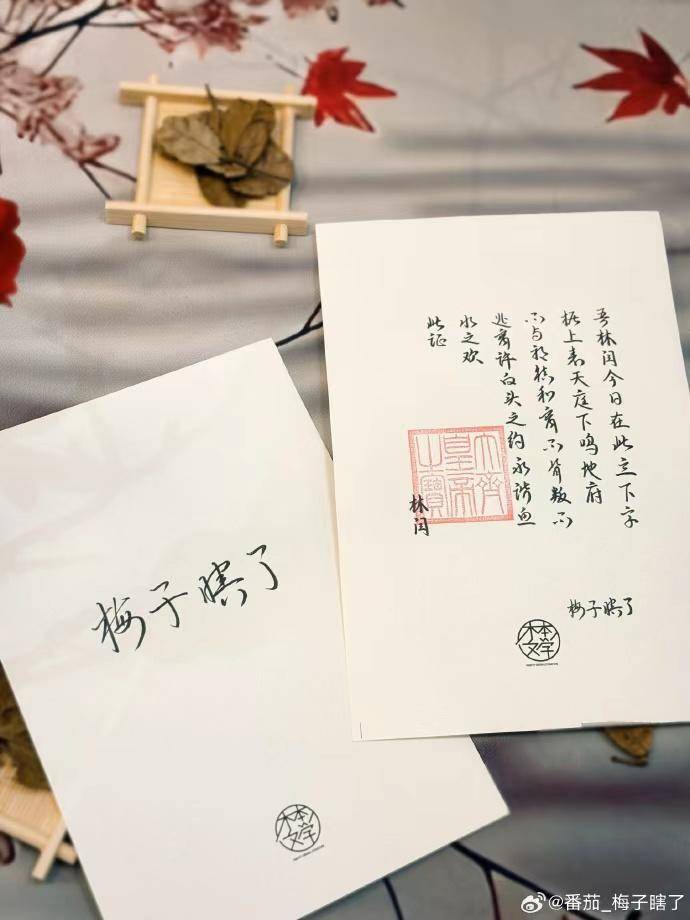 吾林闰今日在此立下字
据上表天庭下鸣地府
不与祁和离不背叛不
逃离许白头之约永谐鱼
水之欢
此证
大齊
皇帝
之寶
林闰
梅子瞎了
木本
文学
梅子瞎了
木本
文学
@番茄_梅子瞎了